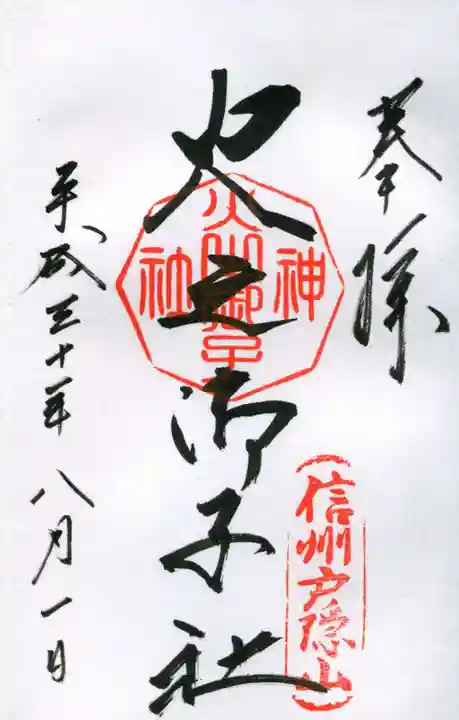 奉拝
信州戸隠山
火之御子社
神社
平成三十年 八月一日